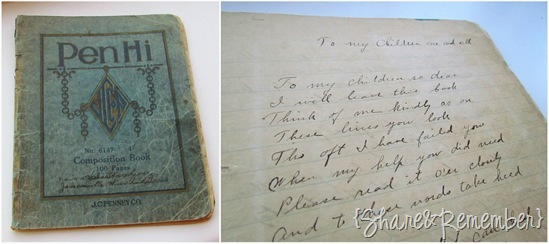 PenHi
JCP Co
No. 6147
Composition Book
100 Pages
J.C. PENNEY CO.
To my Children one and all
To my children so dear
I will leave this book
Think of me kindly as on
These lines you look
Tho oft I have faild you
When my help you did need
Please read it o'er closly
And to these words take heed
{Share&Remember}